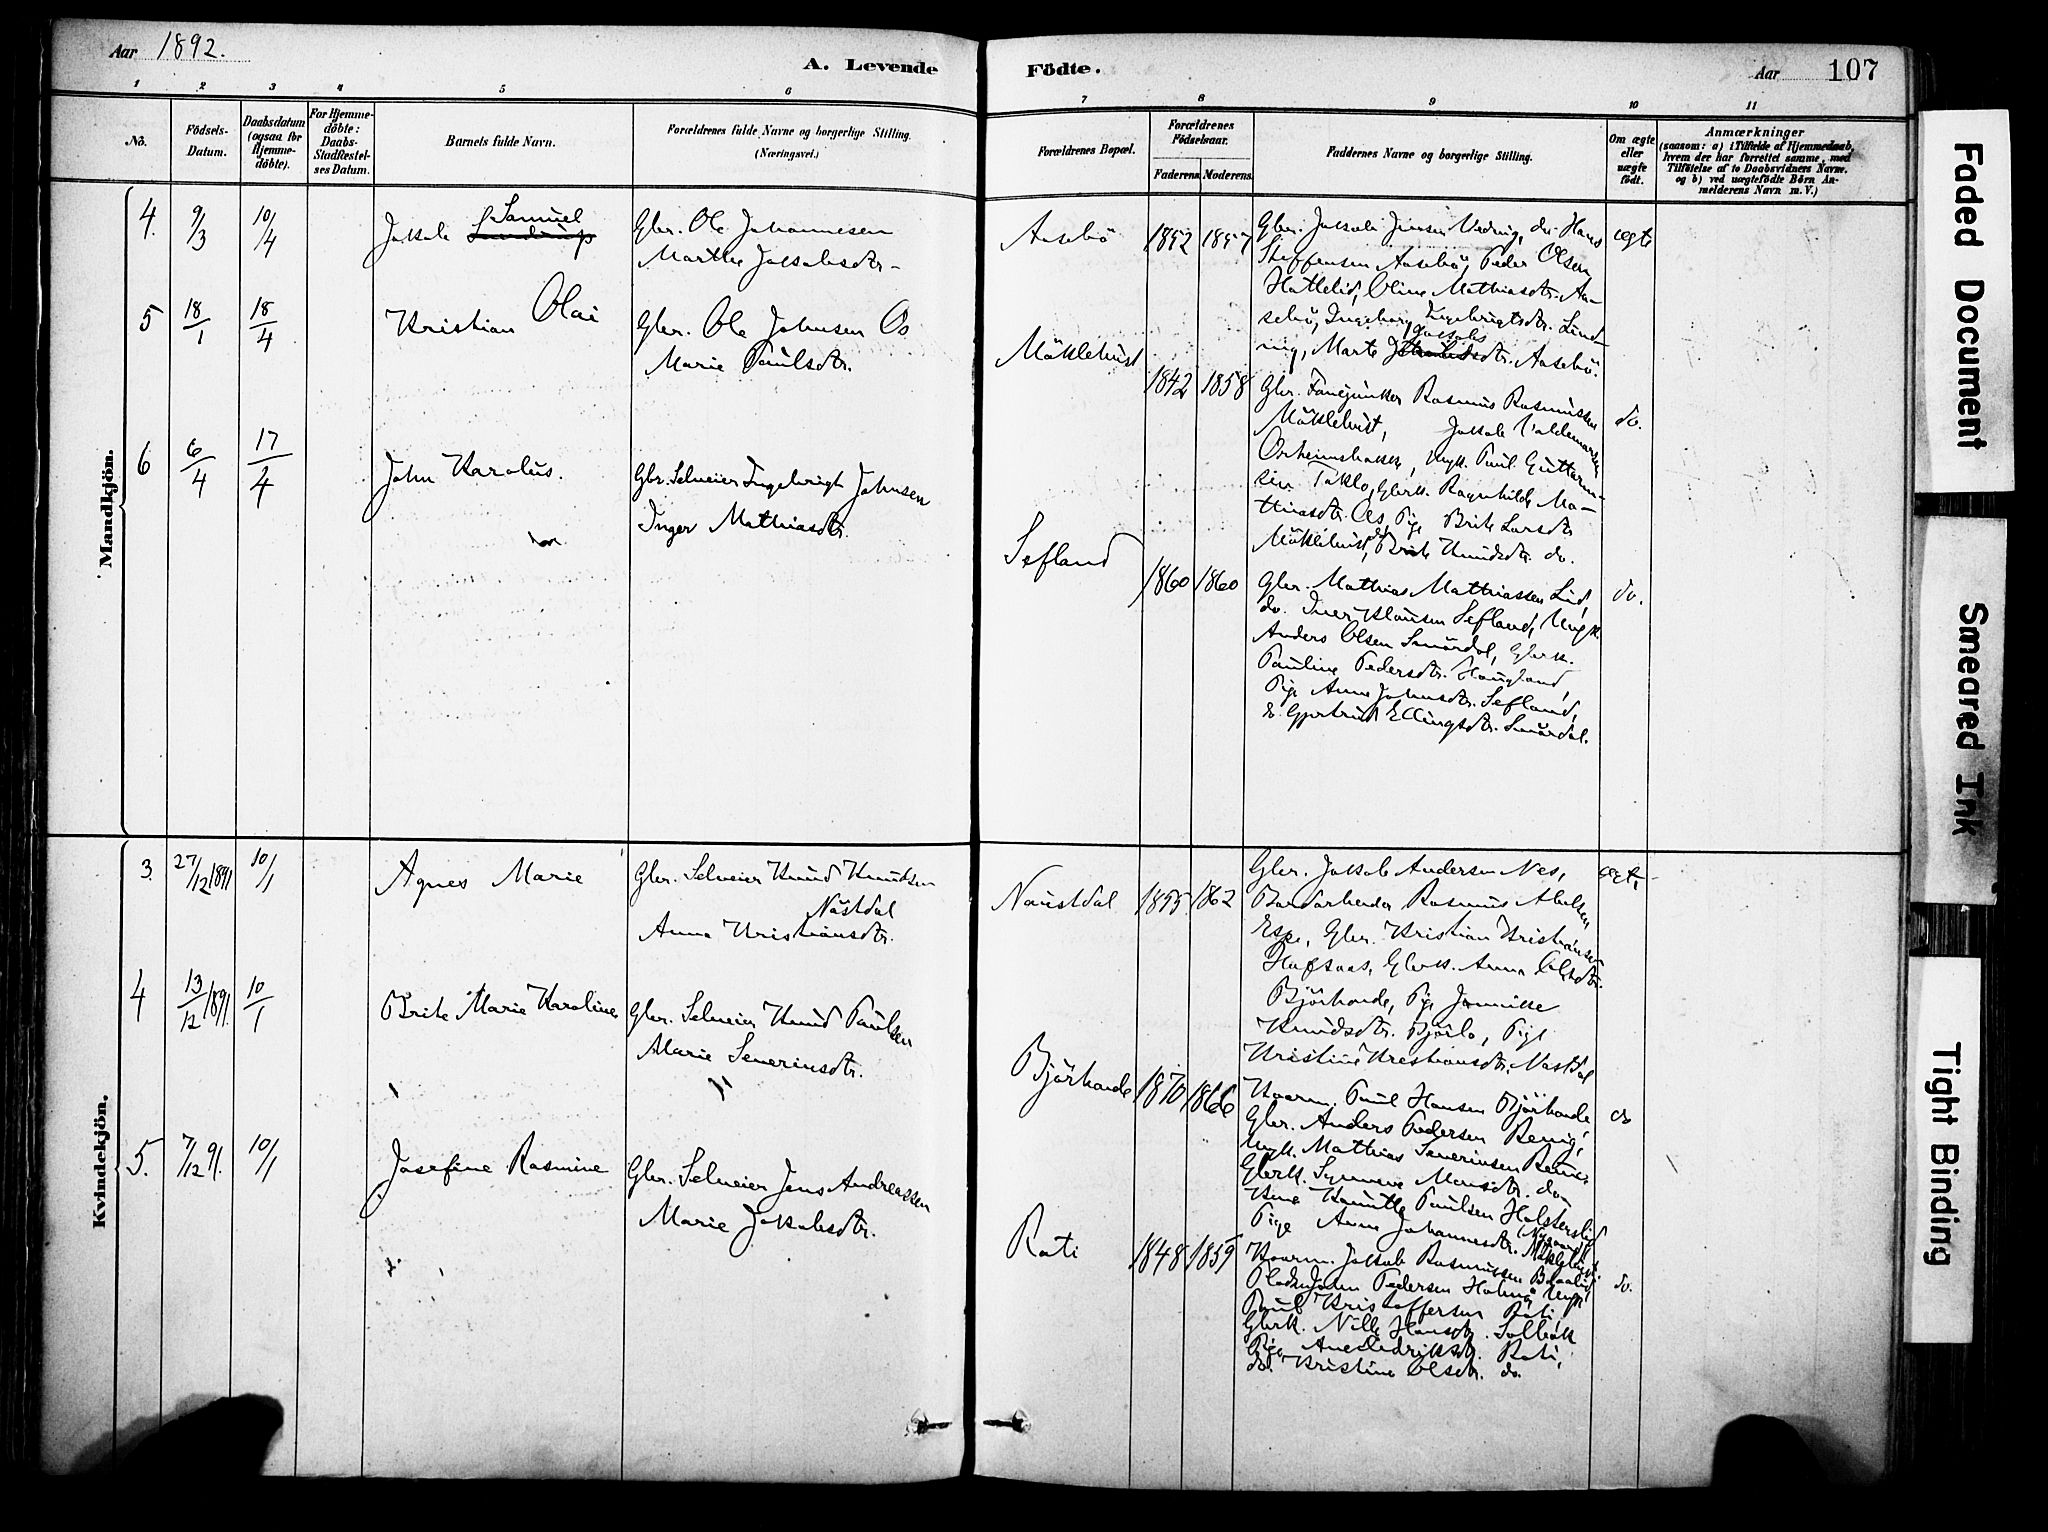 Aar 1892.
A. Levende
Födte.
Aar
107
1
2
3
4
5
6
7
8
9
10
11
No.
Födsels-
Datum.
Daabsdatum
(ogsaa for
Hjemme-
döbte).
For Hjemme-
döbte:
Daabs-
Stadfestel-
ses Datum.
Barnets fulde Navn.
Forældrenes fulde Navne og borgerlige Stilling.
(Næringsvei.)
Forældrenes Bopæl.
Forældrenes
Födselsaar.
Faderens
Moderens
Faddernes Navne og borgerlige Stilling.
Om ægte
eller
uægte
födt.
Anmærkninger
(saasom: a) i Tilfælde af Hjemmedaab,
hvem der har forrettet samme, med
Tilföielse af to Daabsvidners Navne.
og b) ved uægtefödte Börn An-
melderens Navn m. V.)
Mandkjön.
4.
9/3
10/4
Jakob Samuel
Gbr. Ole Johannesen
Marthe Jakobsdtr.
Aasebö
1852
1857
Gbr. Jakob Jensen
do. Hans
Steffensen Aasebö, Peder Olsen
Hattelid, Oline Mathiasdtr. Aa-
sebö, Ingeborg Ingebrigtsdtr. Lind-
Marte Jakobsdtr. Aasebö.
ægte
5
18/1
18/4
Kristian Olai
Gbr. Ole Johnsen Os
Marie Paulsdtr.
Möklebust
1842
1858
Gbr. Fanejunker Rasmus Rasmussen
Möklebust, Jakob Valdemarsen
Ungk. Paul Guttorm-
sen Taklo, Gbrk. Ragnhilde Ma-
thiasdtr. Os, Pige Brite Larsdtr.
Möklebust, Brite Knudsdtr. do.
do.
6
6/4
17/4
John Karolus.
Gbr. Selveier Ingebrigt Johnsen
Inger Mathiasdtr.
Sefland
1860
1860
Gbr. Mathias Mathiassen Lid,
do. Iver Klausen Sefland, Ungk.
Anders Olsen Smördal, Gbrk.
Pauline Pedersdtr. Haugland,
Pige Anne Johnsdtr. Sefland,
do. Gjertrud Ellingsdtr. Smördal.
do.
Kvindekjön.
3.
27/12 1891
10/1
Agnes Marie
Gbr. Selveier Knud Knudsen
Nastdal
Anna Kristiansdtr.
Naustdal
1855
1862
Gbr. Jakob Andersen Nes,
Rasmus Abelsen
Espe, Gbr. Kristian Kristiansen
Hafsaas, Gbrk. Anna Olsdtr.
Björhovde, Pige Jannikke
Knudsdtr. Björlo, Pige
Kristine Kristiansdtr. Nastdal
ægte
4
13/12 1891.
10/1
Brite Marie Karoline
Gbr. Selveier Knud Paulsen
Marie Severinsdtr.
Björhovde
1870
1866
Kaarm. Paul Hansen Björhovde
Gbr. Anders Pedersen Rennig,
Ungk. Mathias Severinsen
Gbrk. Synneve Monsdtr. do
Paulsen Holsterslid
Pige Anne Johannesdtr. Möklebust.
do
5.
7/12 91.
10/1
Josefine Rasmine
Gbr. Selveier Jens Andreassen
Marie Jakobsdtr.
Rati
1848
1859
Kaarm. Jakob Rasmussen
John Pedersen Holme, Ungk.
Paul Kristoffersen Rati,
Gbrk. Nille Hansdtr. Solbak
Pige Ane Didriksdtr. Rati,
do. Kristine Olsdtr. do.
do.
Faded Document
Smeared Ink
Tight Binding